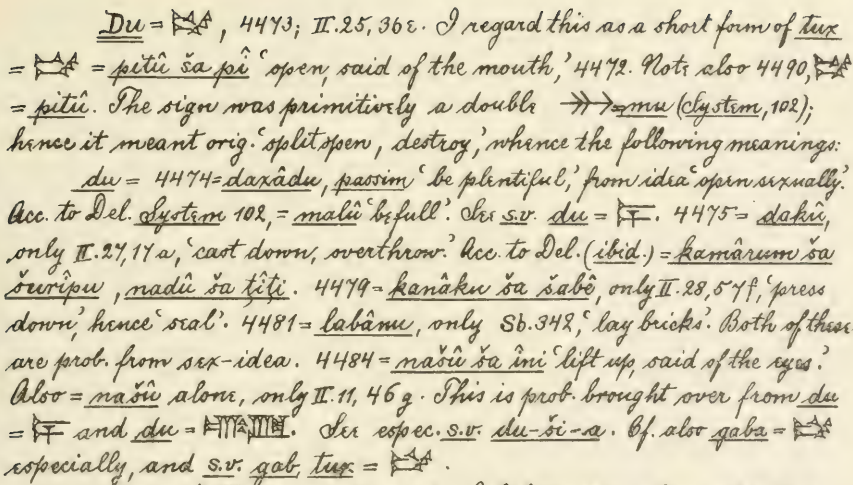 Du = 𒃮, 4473; II.25, 36e. I regard this as a short form of tux
= 𒃮 = pitû ša pî ‘open, said of the mouth,’ 4472. Note also 4490, 𒃮
= pitû. The sign was primitively a double = mu (System, 102);
hence it meant orig. ‘split open, destroy,’ whence the following meanings:
du = 4474 = daxâdu, passim ‘be plentiful,’ from idea ‘open sexually.’
Acc. to Del. System 102, = malû ‘be full’. See s.v. du = . 4475 = dakû,
only II.27, 17a, ‘cast down, overthrow.’ Acc. to Del. (ibid.) = kamârum ša
šurîpu, nadû ša ṭîṭi. 4479 = kanâku ša šabê, only II.28, 57f, ‘press
down,’ hence ‘seal’. 4481 = labânu, only Sb.342, ‘lay bricks’. Both of these
are prob. from sex-idea. 4484 = našû ša îni ‘lift up, said of the eyes.’
Also = našû alone, only II.11, 46g. This is prob. brought over from du
= and du = . See espec. s.v. du-ši-a. Cf. also gaba = 𒃮
especially, and s.v. gab, tux = 𒃮.